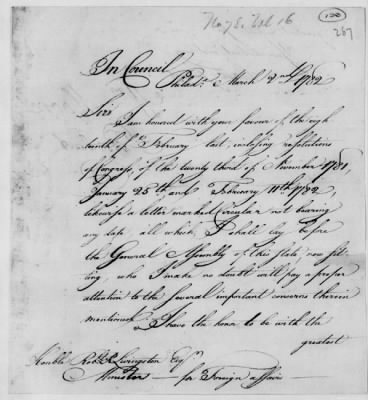 No 78. Vol 16
120
287
In Council
Philada. March 2nd 1782
Sir
I am honored with your favour of the eigh
teenth of February last, inclosing resolutions
of Congress, of the twenty third of November 1781,
January 25th and February 11th 1782,
likewise a letter marked Circular not bearing
any date, all which I shall lay before
the General Assembly of this state, now sit-
ting, who I make no doubt will pay a proper
attention to the several important concerns therein
mentioned. I have the honor to be with the
greatest
Honble Robt. R Livingston Esqr.
Minister for Foreign affairs